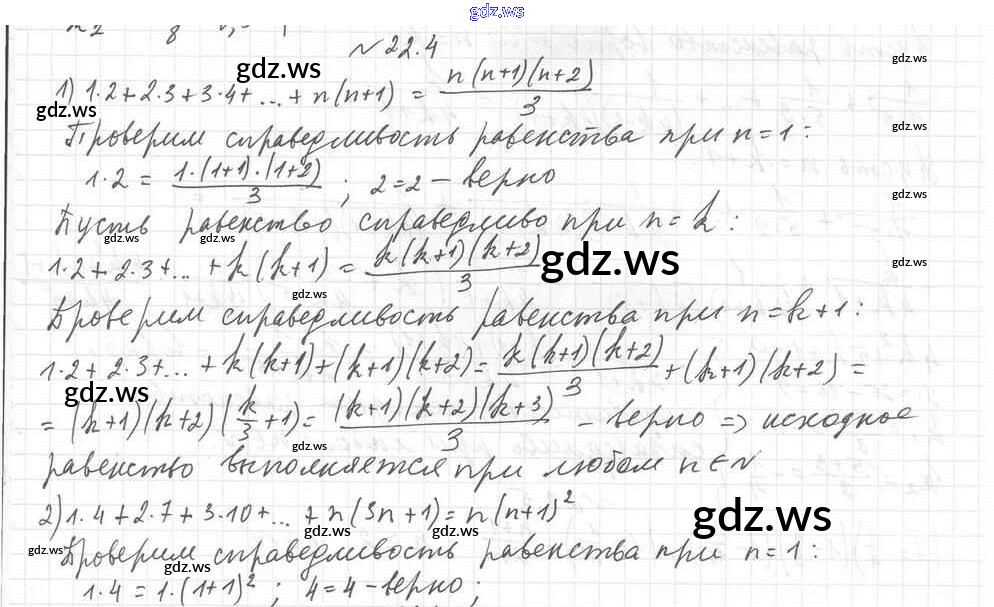 gdz.ws
№ 22.4
gdz.ws
gdz.ws
1) 1·2+2·3+3·4+...+n(n+1) = n(n+1)(n+2)/3
gdz.ws
Проверим справедливость равенства при n=1:
gdz.ws
1·2 = 1·(1+1)·(1+2)/3 ; 2=2 – верно
gdz.ws
Пусть равенство справедливо при n=k:
gdz.ws gdz.ws
1·2+2·3+...+k(k+1) = k(k+1)(k+2)/3
gdz.ws
gdz.ws
gdz.ws
Проверим справедливость равенства при n=k+1:
1·2+2·3+...+k(k+1)+(k+1)(k+2) = k(k+1)(k+2)/3 +(k+1)(k+2) =
gdz.ws
= (k+1)(k+2)(k/3+1) = (k+1)(k+2)(k+3)/3 – верно => исходное
равенство выполняется при любом n∈N
2) 1·4+2·7+3·10+...+n(3n+1) = n(n+1)²
gdz.ws
gdz.ws gdz.ws
gdz.ws
Проверим справедливость равенства при n=1:
gdz.ws
1·4 = 1·(1+1)² ; 4=4 – верно;